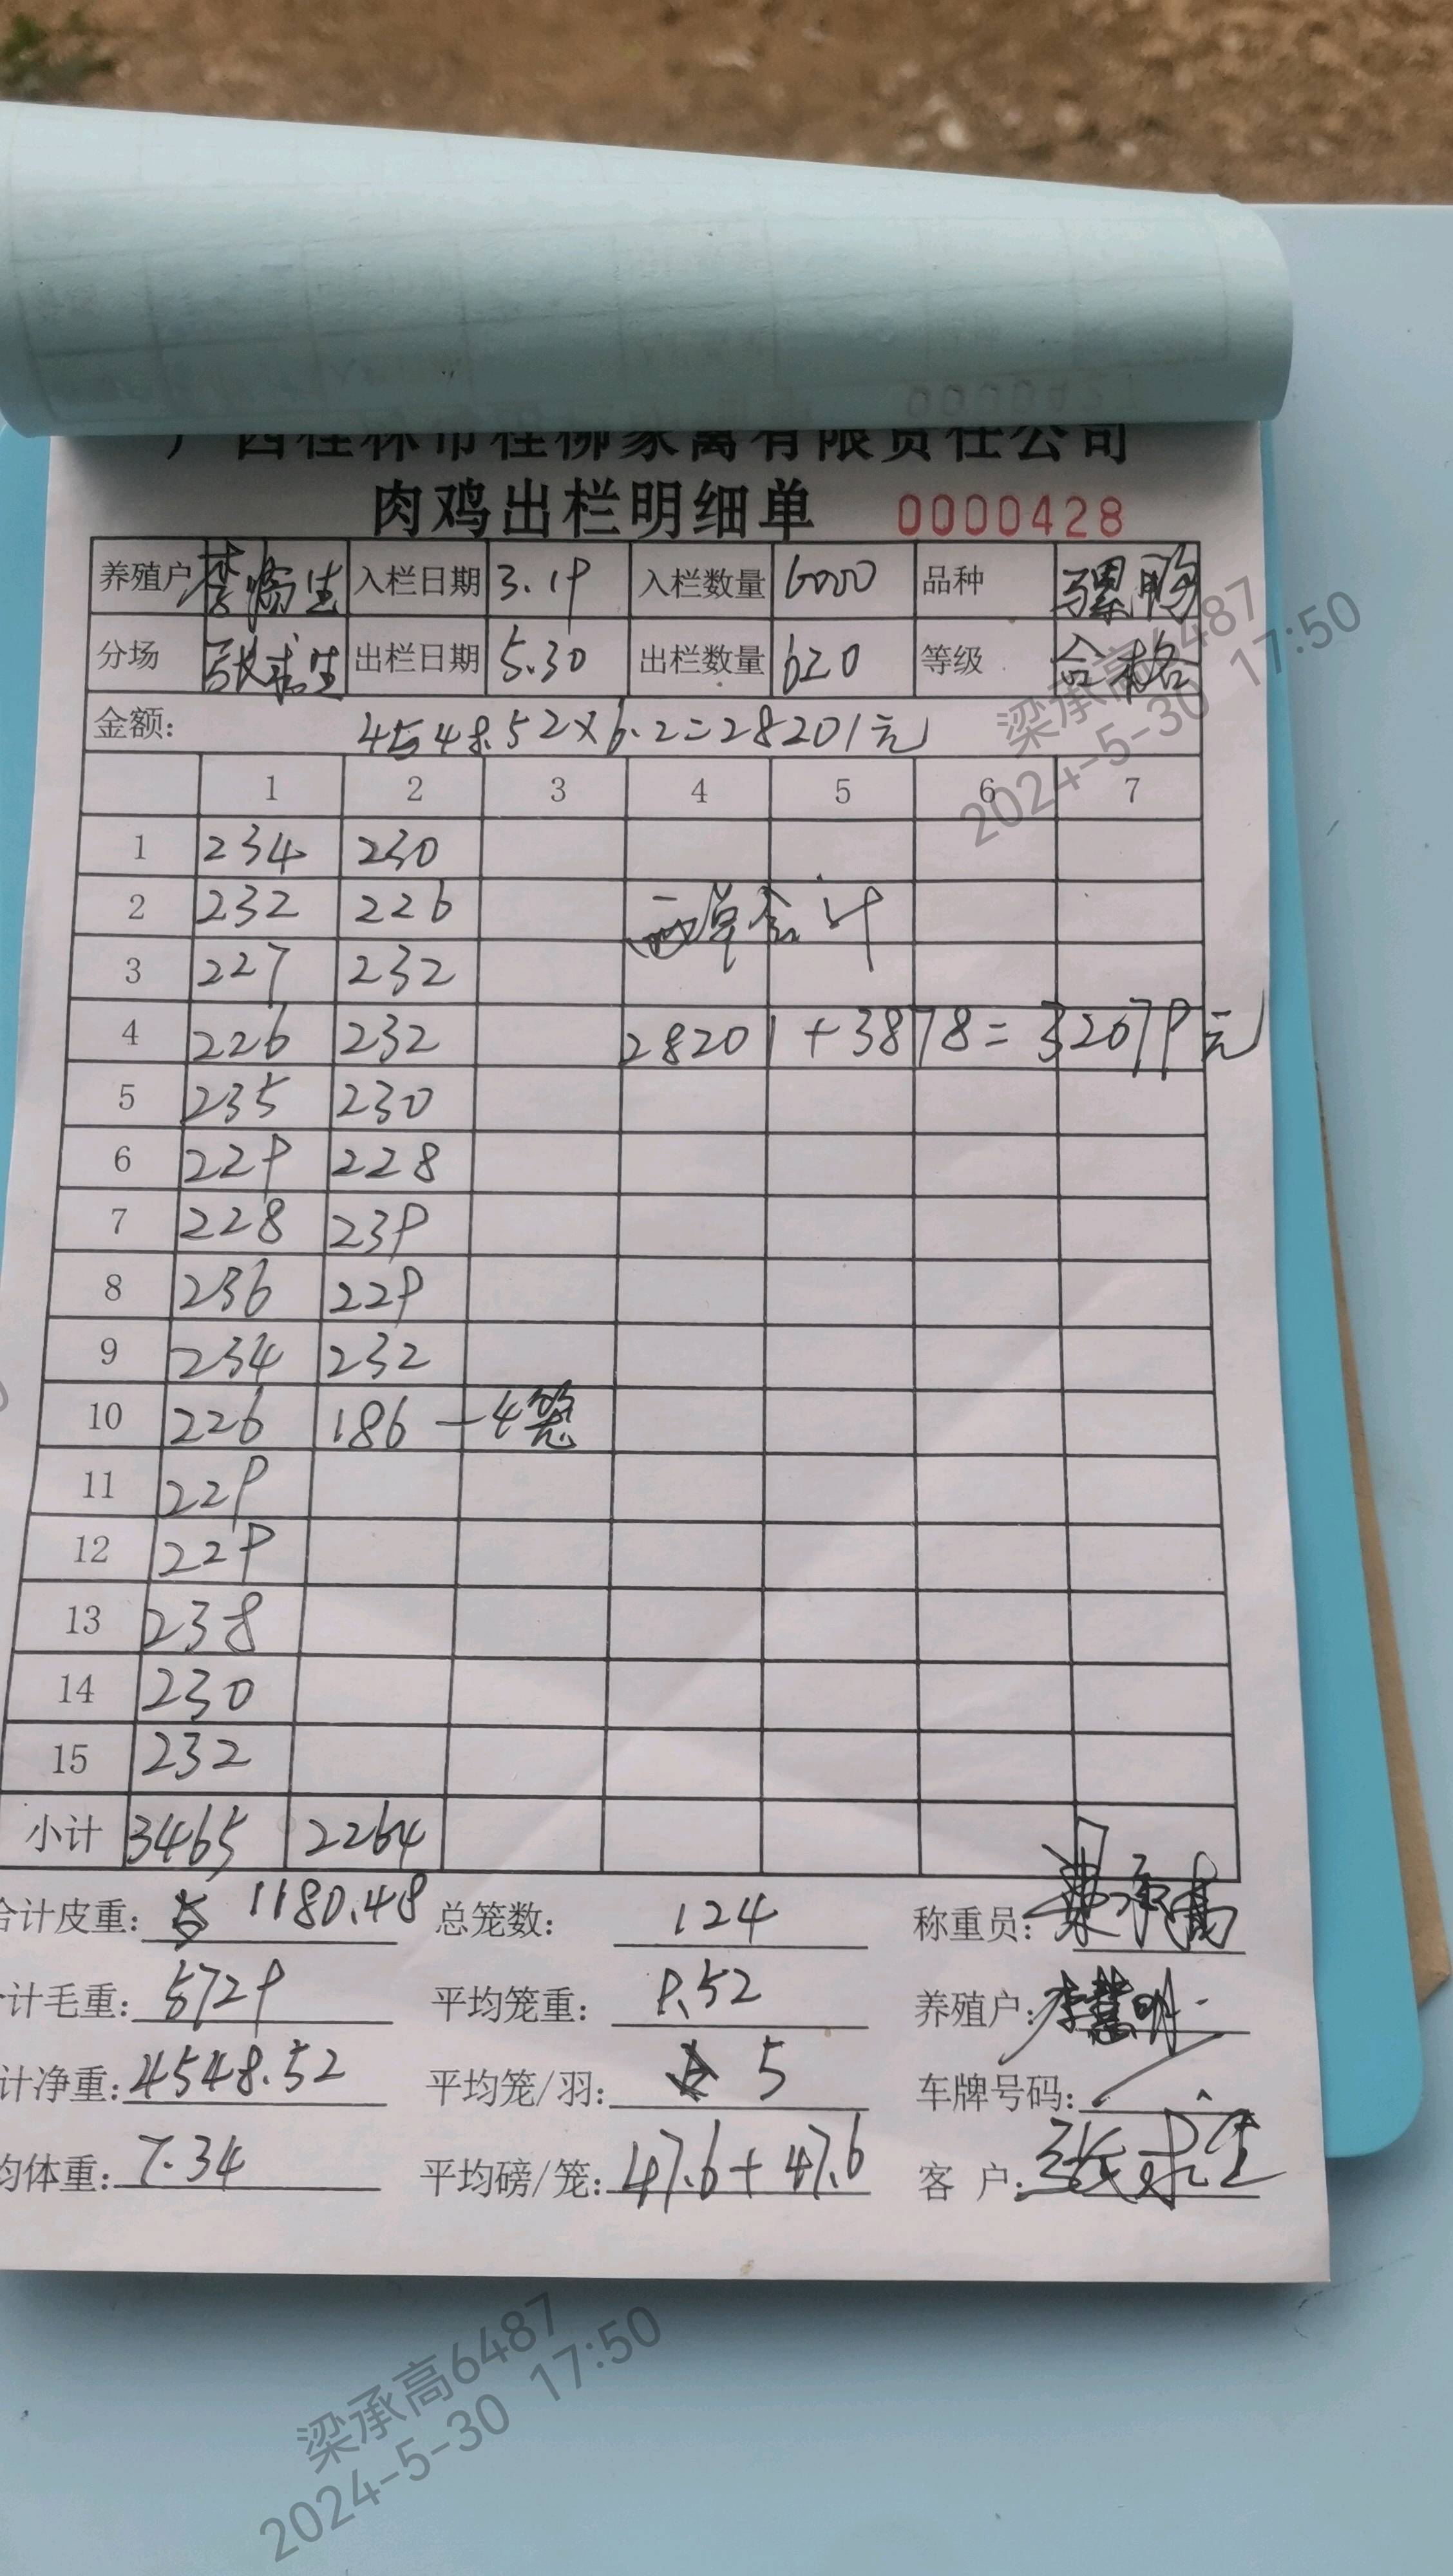 广西桂林市桂柳家禽有限责任公司
肉鸡出栏明细单 0000428
养殖户 入栏日期 3.19 入栏数量 6000 品种 骡鸭
分场 张求生 出栏日期 5.30 出栏数量 620 等级 合格
金额: 4548.52×6.2=28201元
1 2 3 4 5 6 7
1 234 230
2 232 226 两单合计
3 227 232
4 226 232 28201+3878=32079元
5 235 230
6 229 228
7 228 239
8 236 229
9 234 232
10 226 186 — 4笼
11 229
12 229
13 238
14 230
15 232
小计 3465 2264
合计皮重: 1180.48 总笼数: 124 称重员: 梁承高
计毛重: 5729 平均笼重: 9.52 养殖户: 李慧明
计净重: 4548.52 平均笼/羽: 5 车牌号码:
均体重: 7.34 平均磅/笼: 47.6+47.6 客户: 张求生
梁承高6487
2024-5-30 17:50
梁承高6487
2024-5-30 17:50
0000427